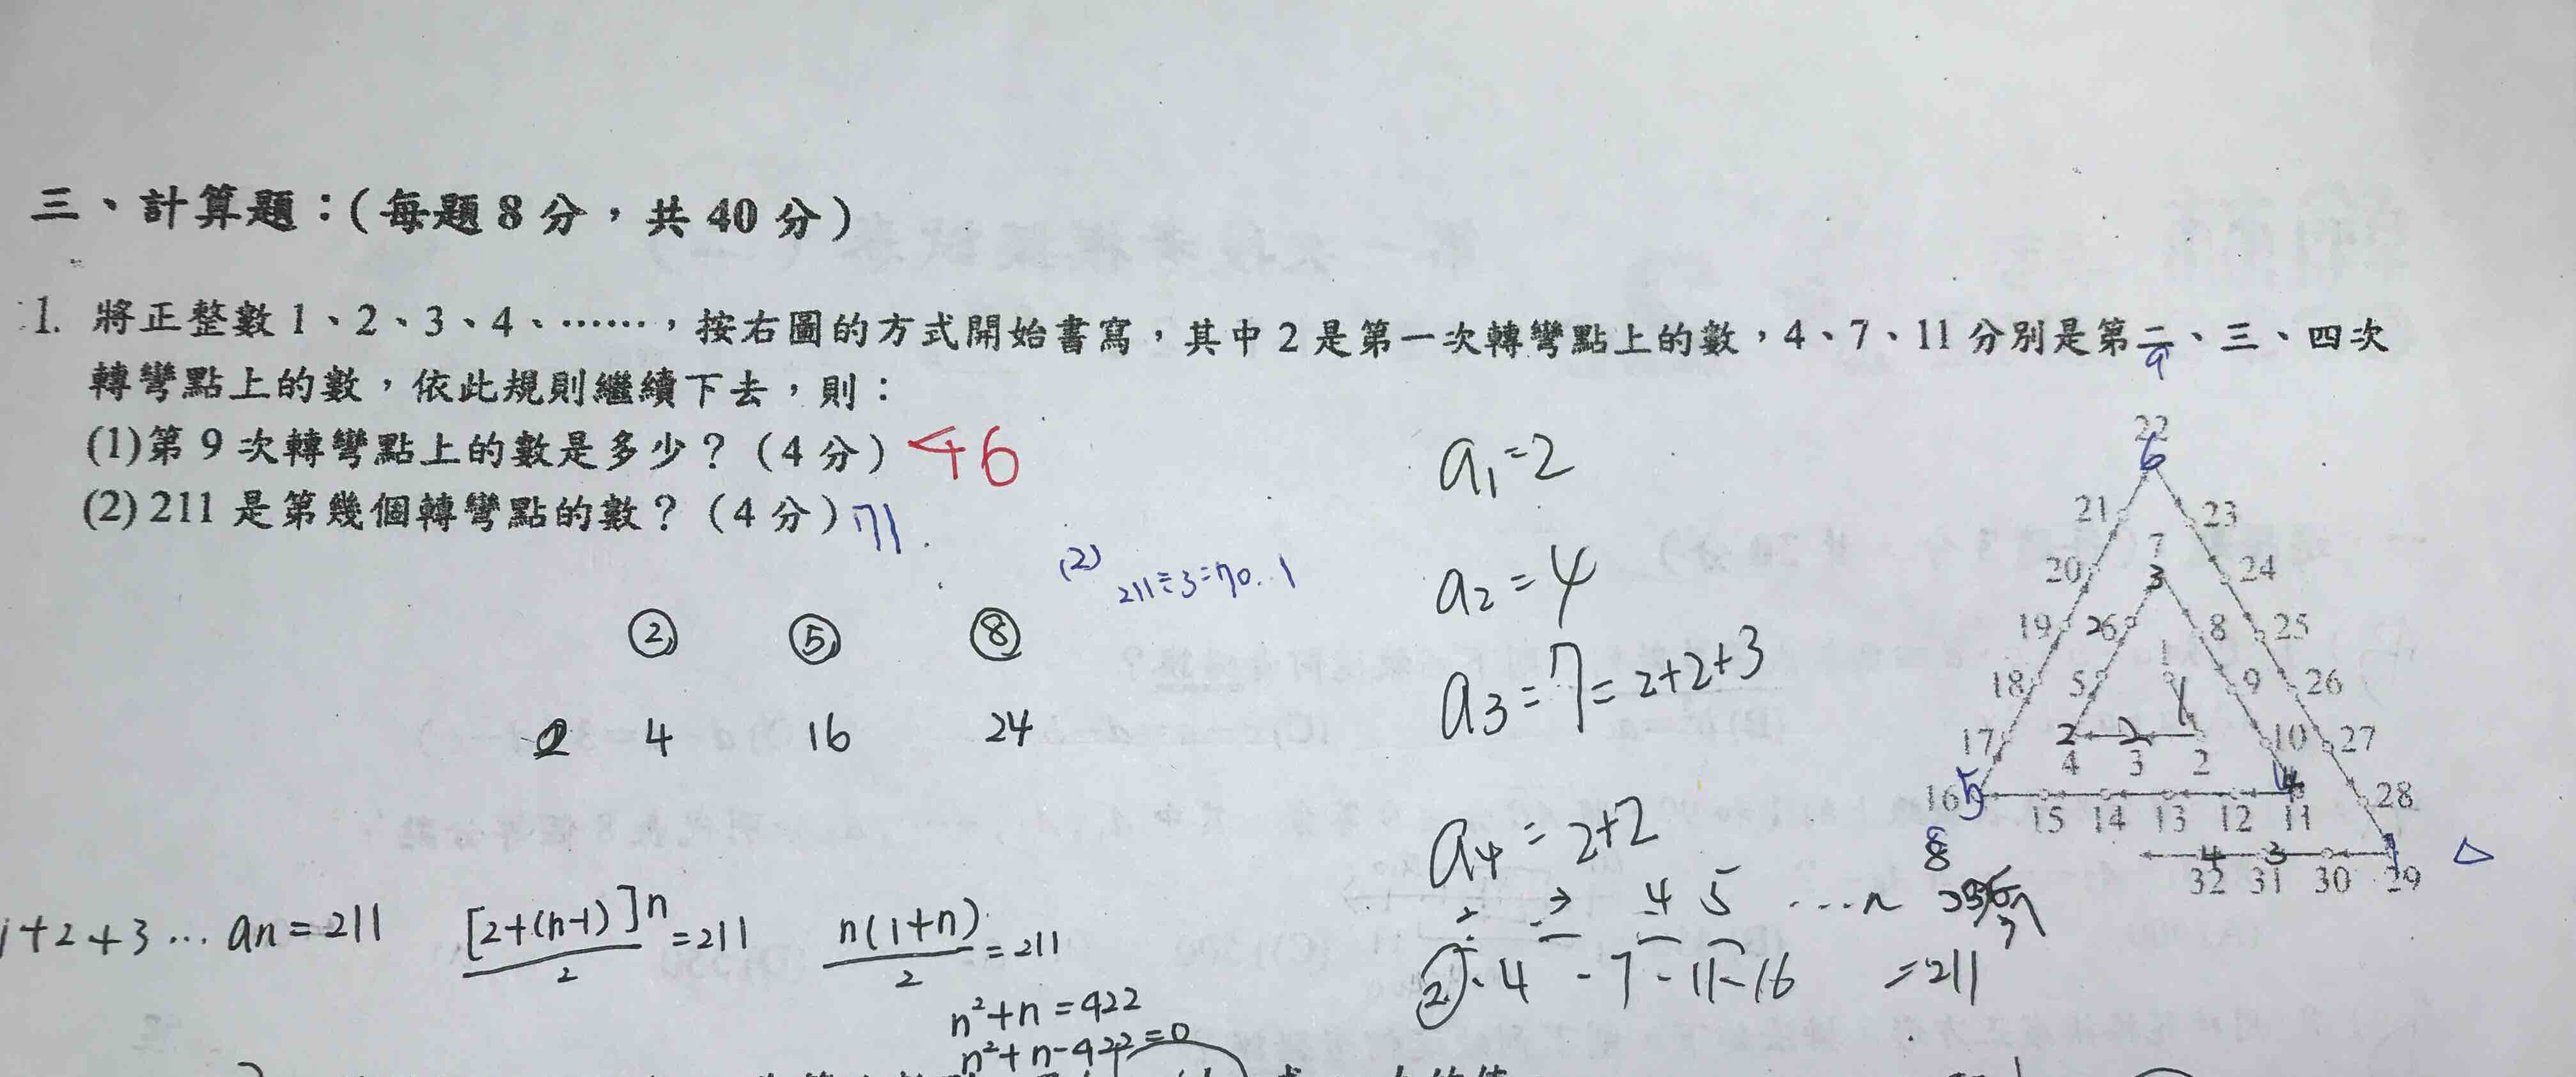 三、計算題：(每題8分，共40分)
1. 將正整數1、2、3、4、……，按右圖的方式開始書寫，其中2是第一次轉彎點上的數，4、7、11分別是第二、三、四次
轉彎點上的數，依此規則繼續下去，則：
(1)第9次轉彎點上的數是多少？(4分) 46
(2) 211是第幾個轉彎點的數？(4分) 71.
(2) 211÷3=70..1
② ⑤ ⑧
4 16 24
1+2+3... an=211
[2+(n-1)]n/2=211
n(1+n)/2=211
n²+n=422
n²+n-422=0
a1=2
a2=4
a3=7=2+2+3
a4=2+2
2 3 4 5 ...n
2-4-7-11-16 =211
9
22
6
21 23
7
20 3 24
19 6 8 25
1
18 5 9 26
1
17 2 2 10 27
4 3 2
16 5 4 28
15 14 13 12 11
8 4 3
32 31 30 29